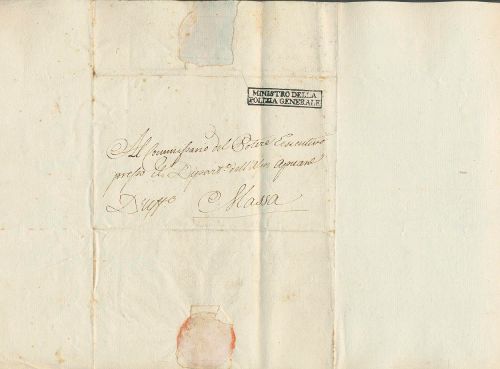 MINISTRO DELLA
POLIZIA GENERALE
Al Commissario del Potere Esecutivo
presso il Dipart.o dell'Alpi Apuane
D'Uff.o Massa